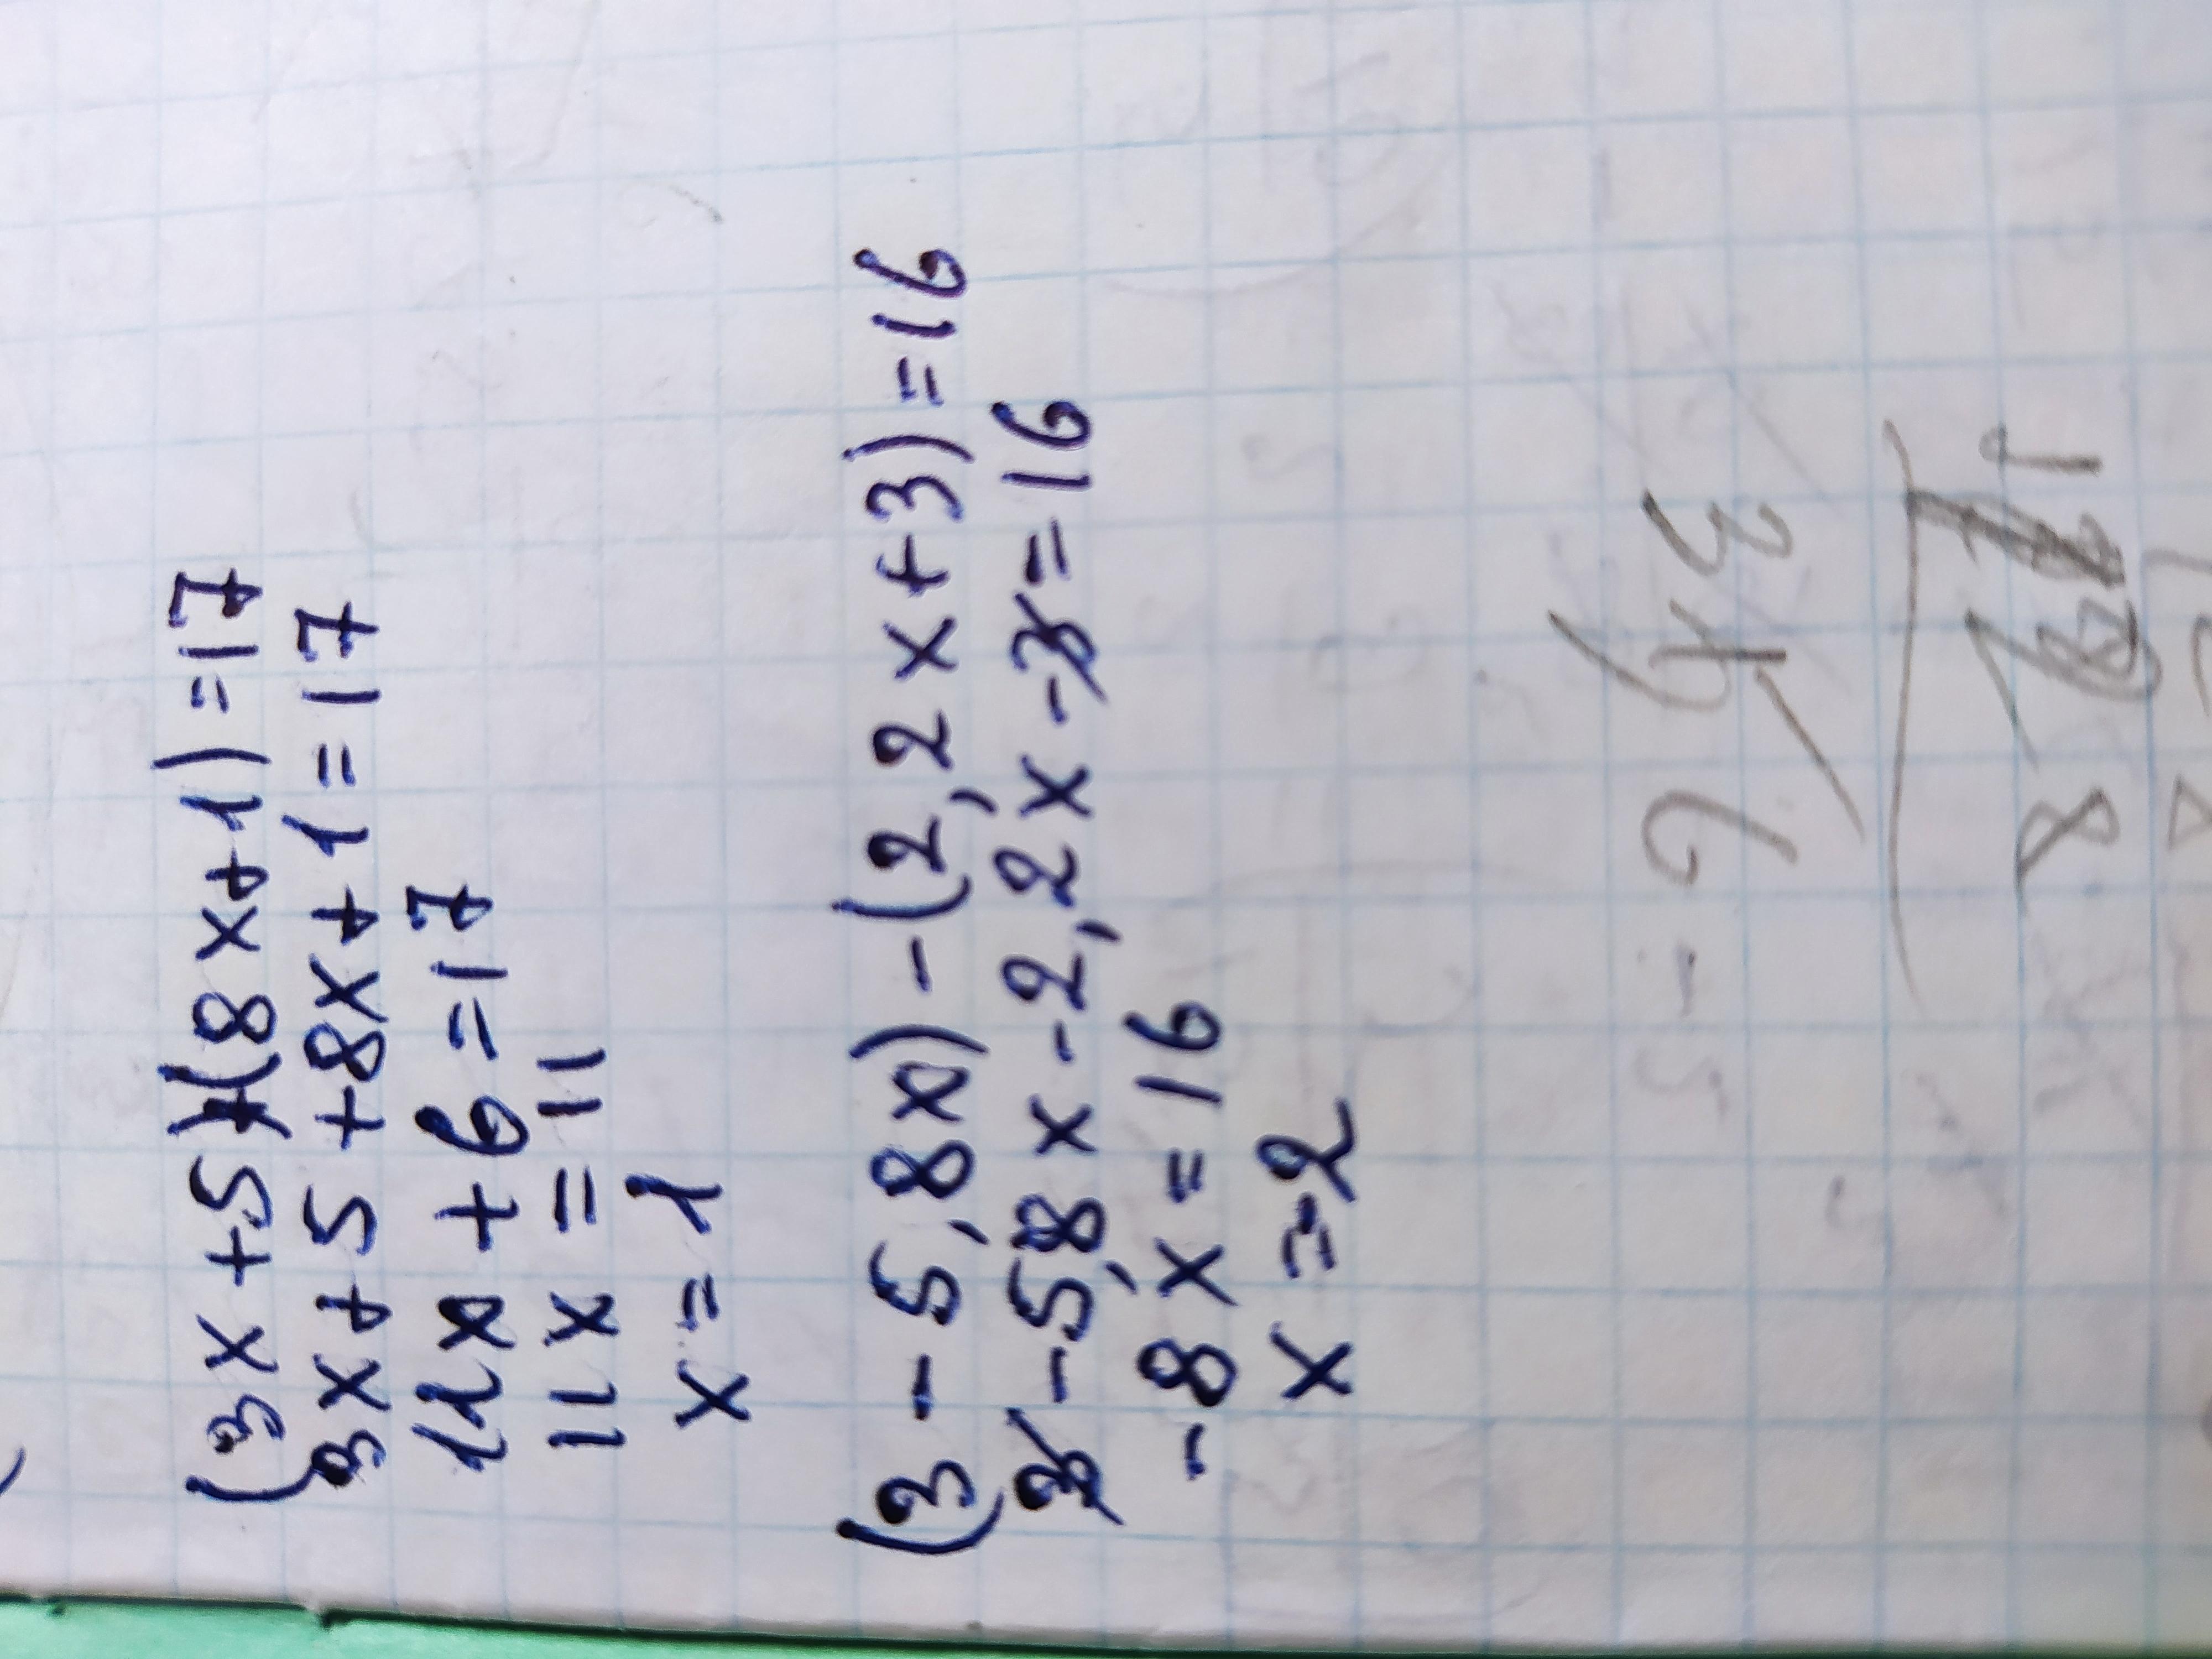 (3x+5)+(8x+1)=17
3x+5+8x+1=17
11x+6=17
11x=11
x=1
(3-5,8x)-(2,2x+3)=16
3-5,8x-2,2x-3=16
-8x=16
x=-2